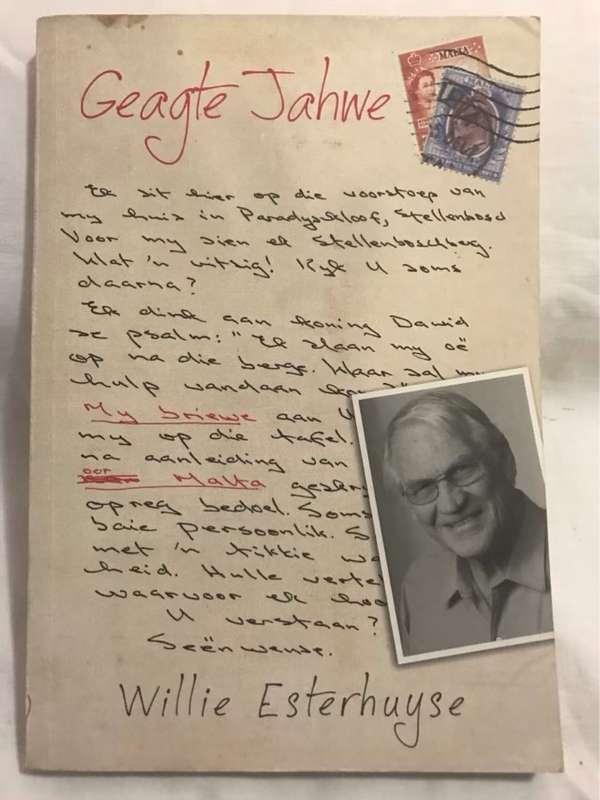 Geagte Jahwe
MALTA
Ek sit hier op die voorstoep van
my huis in Paradyskloof, Stellenbosch
Voor my sien ek Stellenboschberg.
Wat 'n uitsig! Kyk U soms
daarna?
Ek dink aan koning Dawid
se psalm: "Ek slaan my oë
op na die berge. Waar sal my
hulp vandaan kom?"
My briewe aan U
my op die tafel.
na aanleiding van
oor
Malta geskr
opreg bedoel. Soms
baie persoonlik. S
met 'n tikkie wa
heid. Hulle vertel
waarvoor ek hoo
U verstaan?
Seënwense.
Willie Esterhuyse